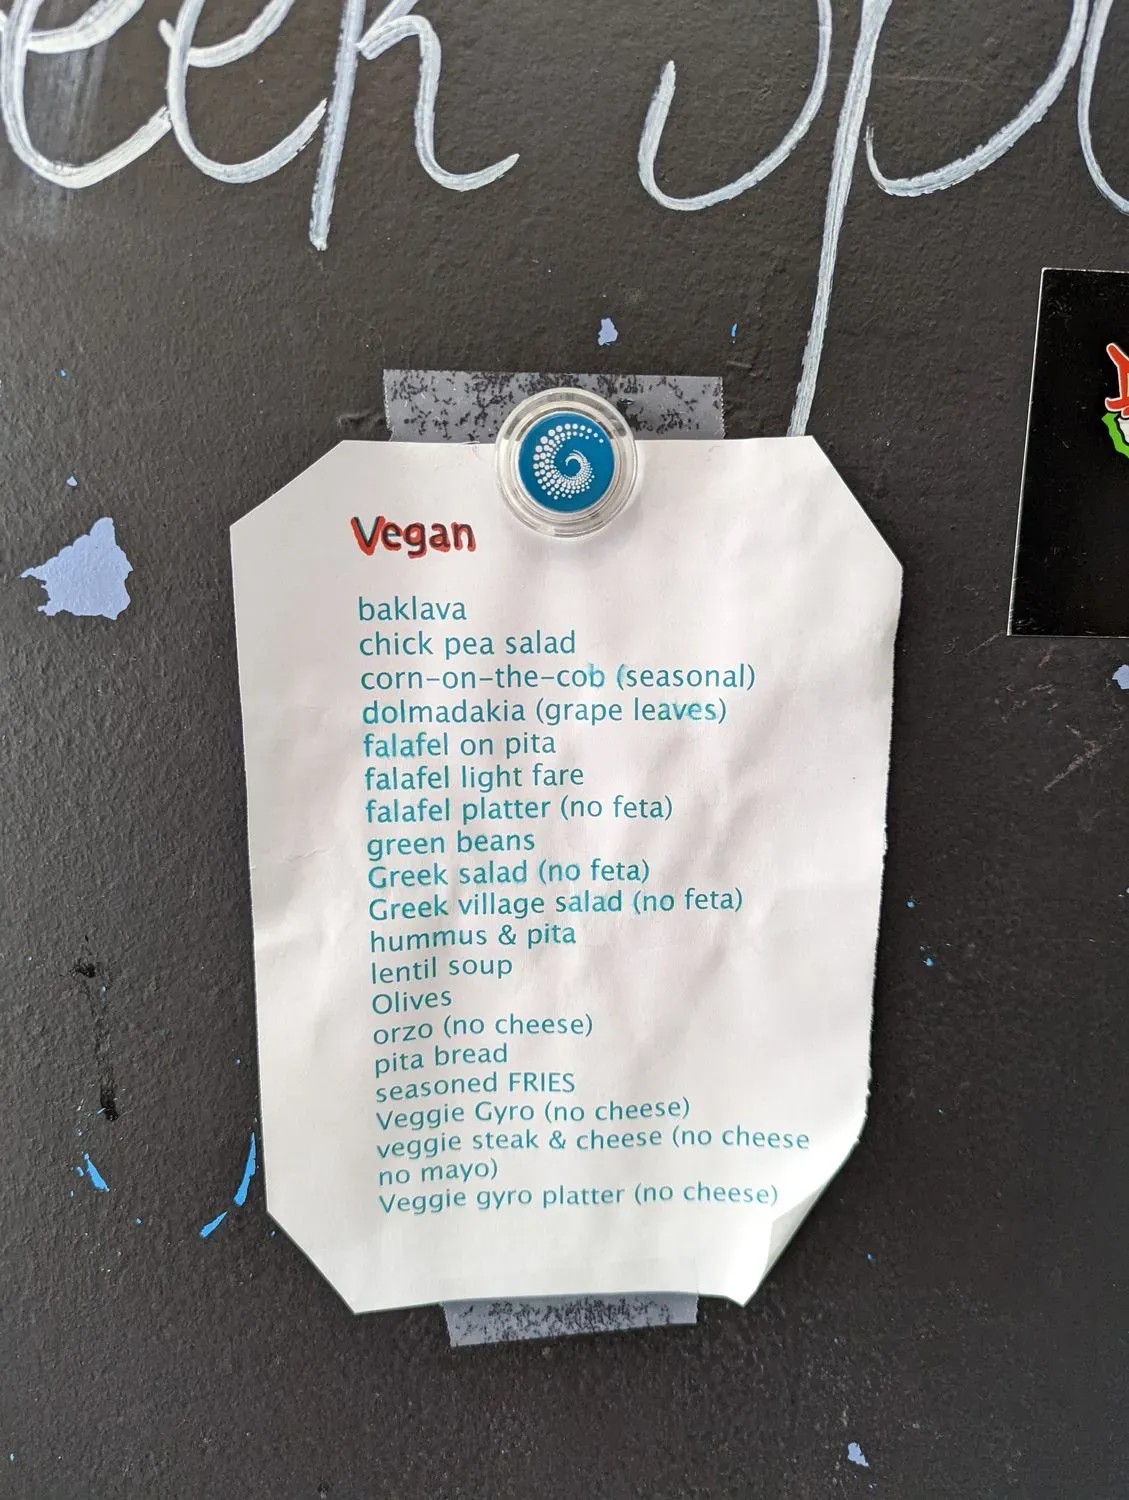 Vegan
baklava
chick pea salad
corn-on-the-cob (seasonal)
dolmadakia (grape leaves)
falafel on pita
falafel light fare
falafel platter (no feta)
green beans
Greek salad (no feta)
Greek village salad (no feta)
hummus & pita
lentil soup
Olives
orzo (no cheese)
pita bread
seasoned FRIES
Veggie Gyro (no cheese)
veggie steak & cheese (no cheese
no mayo)
Veggie gyro platter (no cheese)